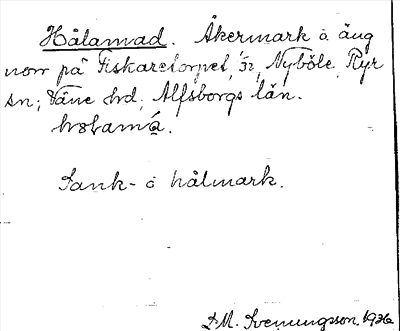 Hålamad. Åkermark o äng
norr på Fiskaretorpet, 1/32, Nyböle, Ryr
sn; Väne hd, Älfsborgs län.
hɷlamá.
Sank- o hålmark.
D.M. Svenungsson. 1936